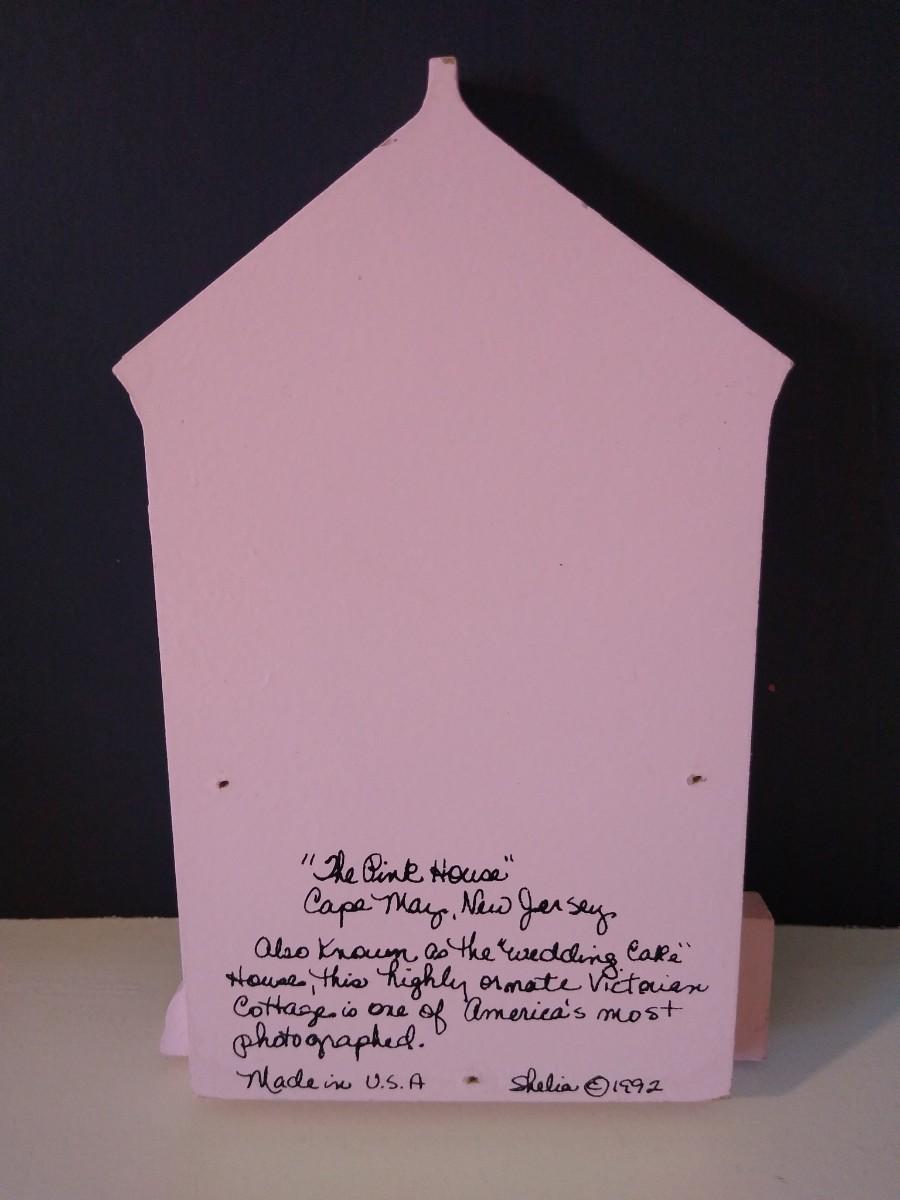 "The Pink House"
Cape May, New Jersey
Also Known as the "wedding Cake"
House, this highly ornate Victorian
Cottage is one of America's most
photographed.
Made in U.S.A Shelia ©1992